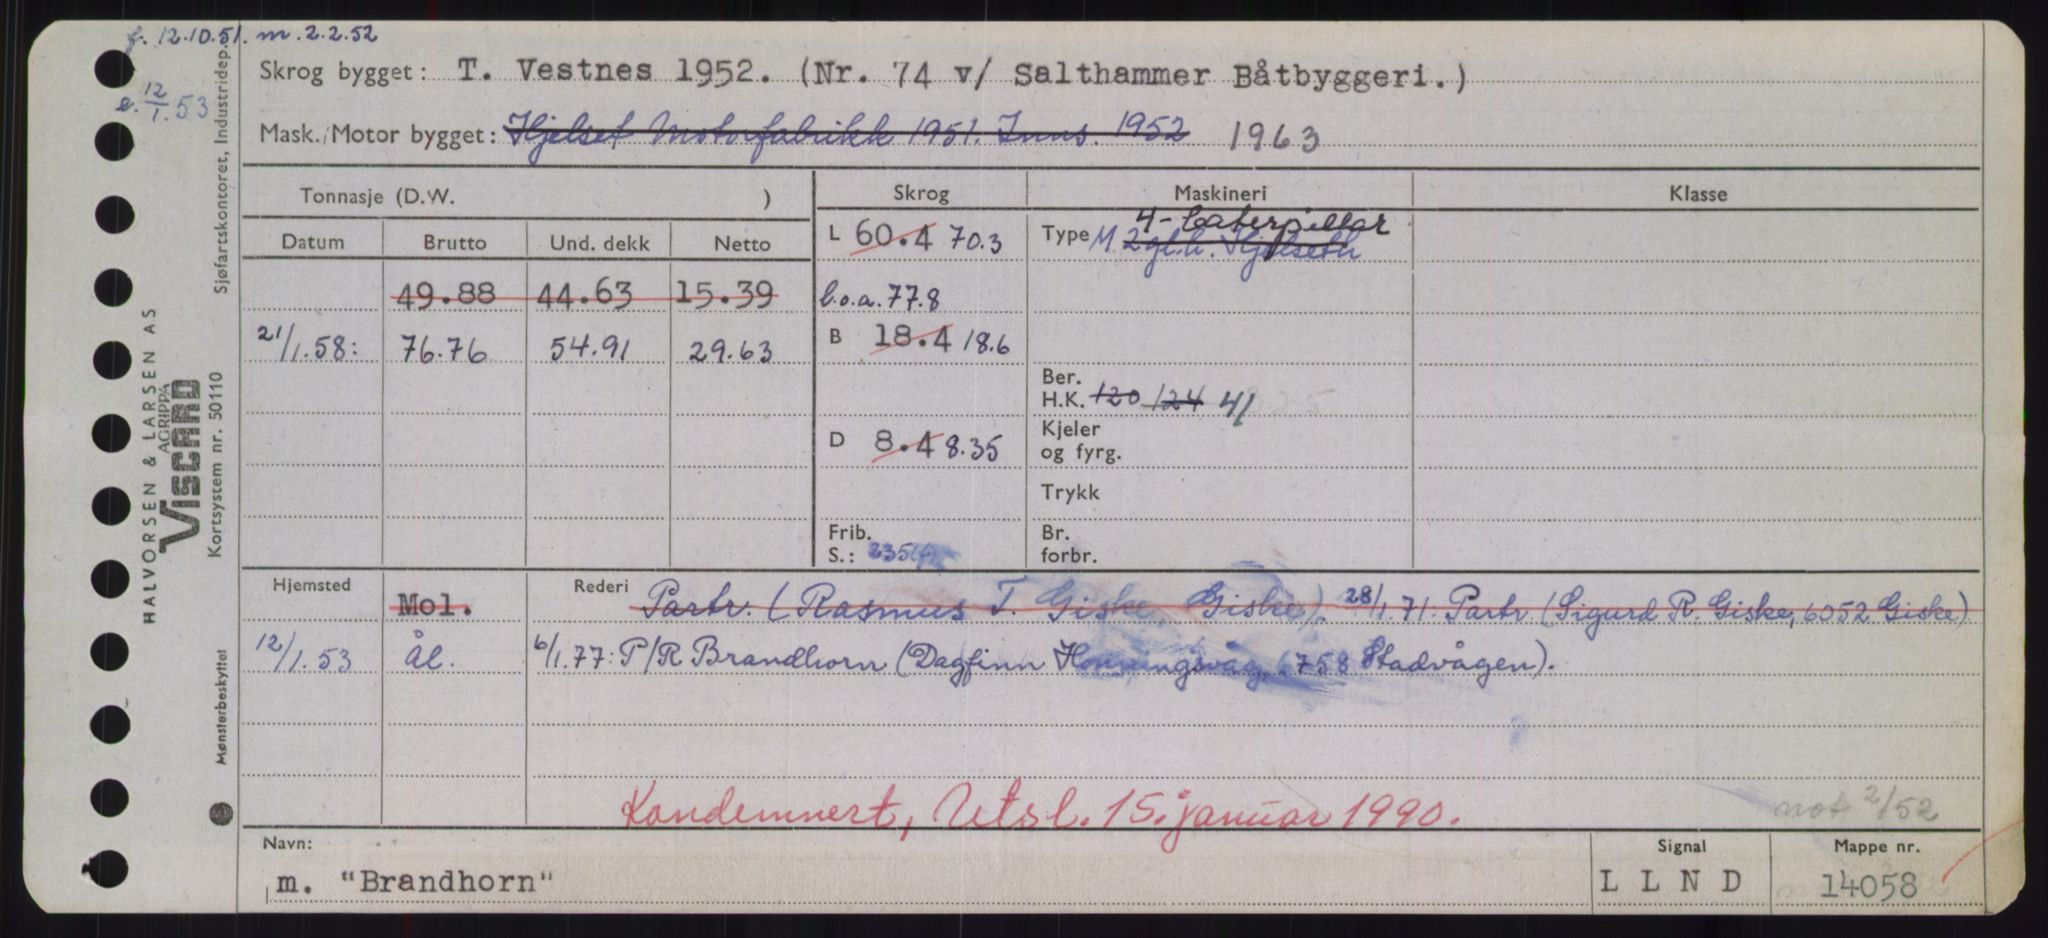 f. 12.10.51. m. 2.2.52
e. 12/1.53
Skrog bygget: T. Vestnes 1952. (Nr. 74 v/ Salthammer Båtbyggeri.)
Mask./Motor bygget: Hjelset Motorfabrikk 1951. Inns. 1952 1963
Tonnasje (D.W. ) Skrog Maskineri Klasse
Datum Brutto Und. dekk Netto
L 60.4 70.3
Type M 2 syl. Hjelseth
4-Caterpillar
49.88 44.63 15.39
l.o.a. 77.8
21/1.58: 76.76 54.91 29.63
B 18.4 18.6
Ber.
H.K. 120 124 41
D 8.4 8.35
Kjeler
og fyrg.
Trykk
Frib.
S.: 235
Br.
forbr.
Hjemsted Mol. Rederi Partr. (Rasmus T. Giske, Giske). 28/1.71: Partr. (Sigurd R. Giske, 6052 Giske)
12/1.53 Ål. 6/1.77: P/R Brandhorn (Dagfinn Honningsvåg, 6758 Stadvågen).
Kondemnert, Utsl. 15. januar 1990.
not 2/52
Navn:
m. "Brandhorn"
Signal
L L N D
Mappe nr.
14058
HALVORSEN & LARSEN AS
AGRIPPA
VISCARD
Kortsystem nr. 50110
Sjøfartskontoret, Industridep.
Mønsterbeskyttet